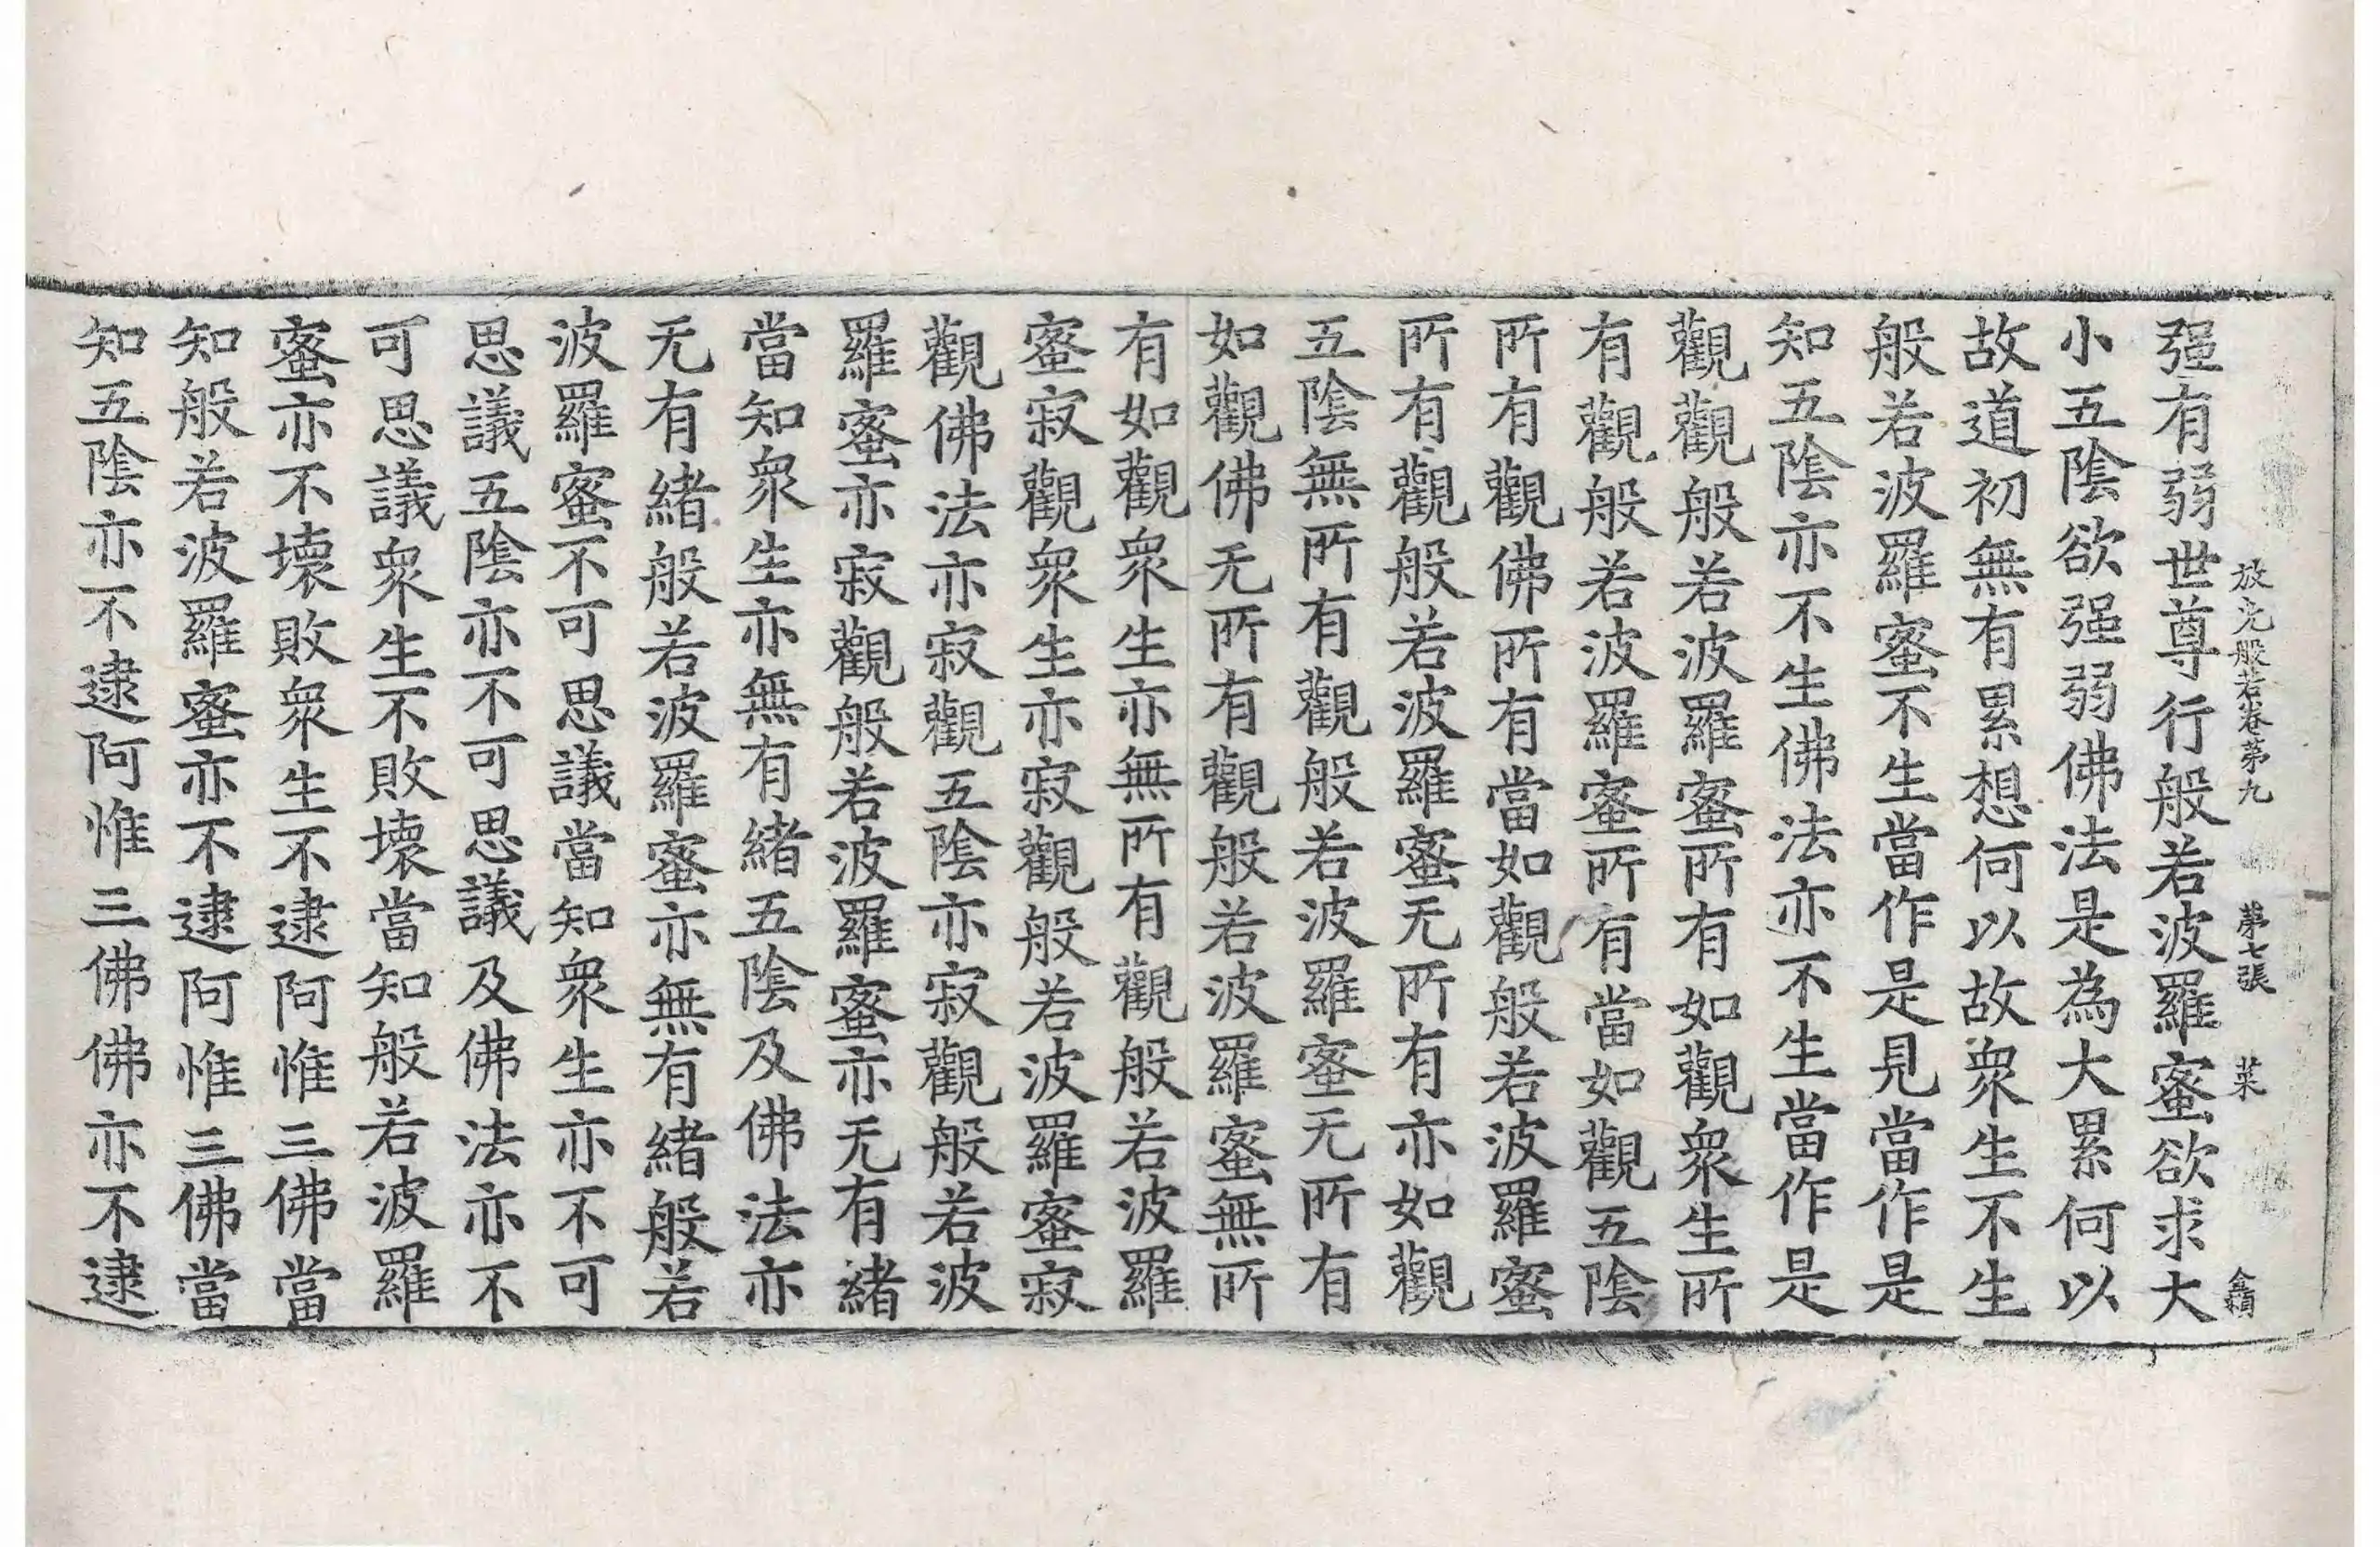 放光般若卷第九 第七張 菜
强有弱世尊行般若波羅蜜欲求大
小五陰欲强弱佛法是為大累何以
故道初無有累想何以故衆生不生
般若波羅蜜不生當作是見當作是
知五陰亦不生佛法亦不生當作是
觀觀般若波羅蜜所有如觀衆生所
有觀般若波羅蜜所有當如觀五陰
所有觀佛所有當如觀般若波羅蜜
所有觀般若波羅蜜无所有亦如觀
五陰無所有觀般若波羅蜜无所有
如觀佛无所有觀般若波羅蜜無所
有如觀衆生亦無所有觀般若波羅
蜜寂觀衆生亦寂觀般若波羅蜜寂
觀佛法亦寂觀五陰亦寂觀般若波
羅蜜亦寂觀般若波羅蜜亦无有緒
當知衆生亦無有緒五陰及佛法亦
无有緒般若波羅蜜亦無有緒般若
波羅蜜不可思議當知衆生亦不可
思議五陰亦不可思議及佛法亦不
可思議衆生不敗壞當知般若波羅
蜜亦不壞敗衆生不逮阿惟三佛當
知般若波羅蜜亦不逮阿惟三佛當
知五陰亦不逮阿惟三佛佛亦不逮